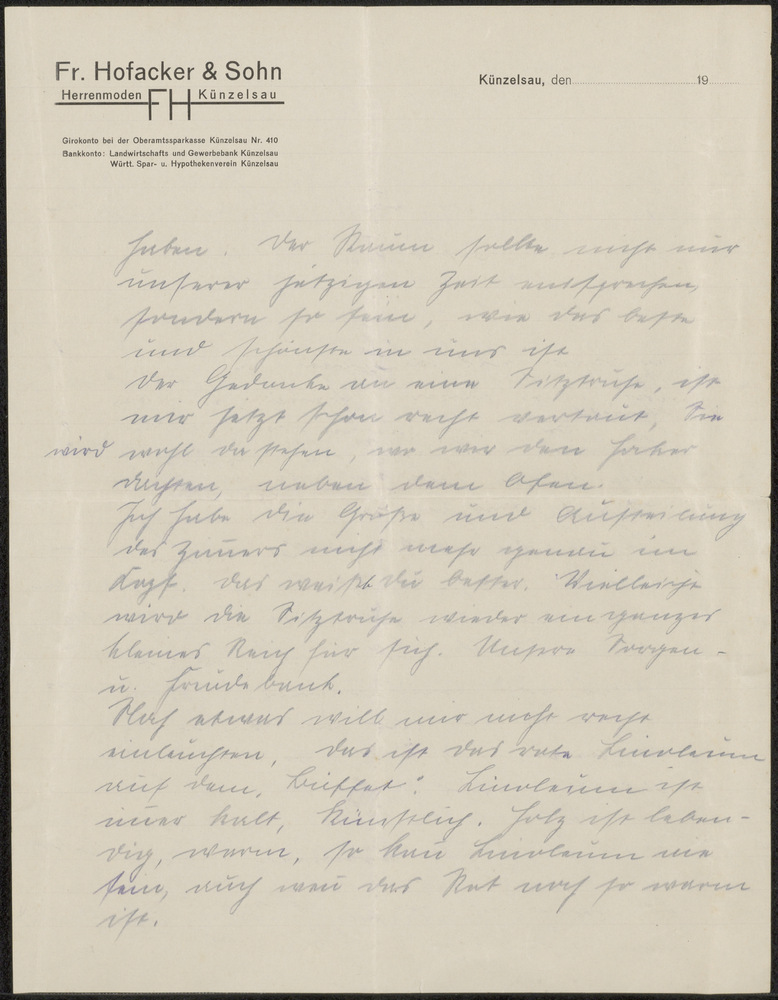 Fr. Hofacker & Sohn
Herrenmoden FH Künzelsau
Künzelsau, den 19
Girokonto bei der Oberamtssparkasse Künzelsau Nr. 410
Bankkonto: Landwirtschafts und Gewerbebank Künzelsau
Württ. Spar- u. Hypothekenverein Künzelsau
haben. Der Raum sollte nicht nur
unserer jetzigen Zeit entsprechen,
sondern so sein, wie das beste
und schönste in uns ist
Der Gedanke an eine Sitztruhe, ist
mir jetzt schon recht vertraut, Sie
wird wohl da stehen, wo wir den
dachten, neben dem Ofen.
Ich habe die Größe und Aufteilung
des Zimers nicht mehr genau im
Kopf. Das weißt du besser. Vielleicht
wird die Sitztruhe wieder ein ganzes
kleines Reich für sich. Unsere Sorgen-
u. Freudebank.
Noch etwas will mir nicht recht
einleuchten, das ist das rote Linoleum
auf dem "Büffet". Linoleum ist
imer kalt, künstlich. Holz ist leben-
dig, warm, so kan Linoleum nie
sein, auch wen das Rot noch so warm
ist.